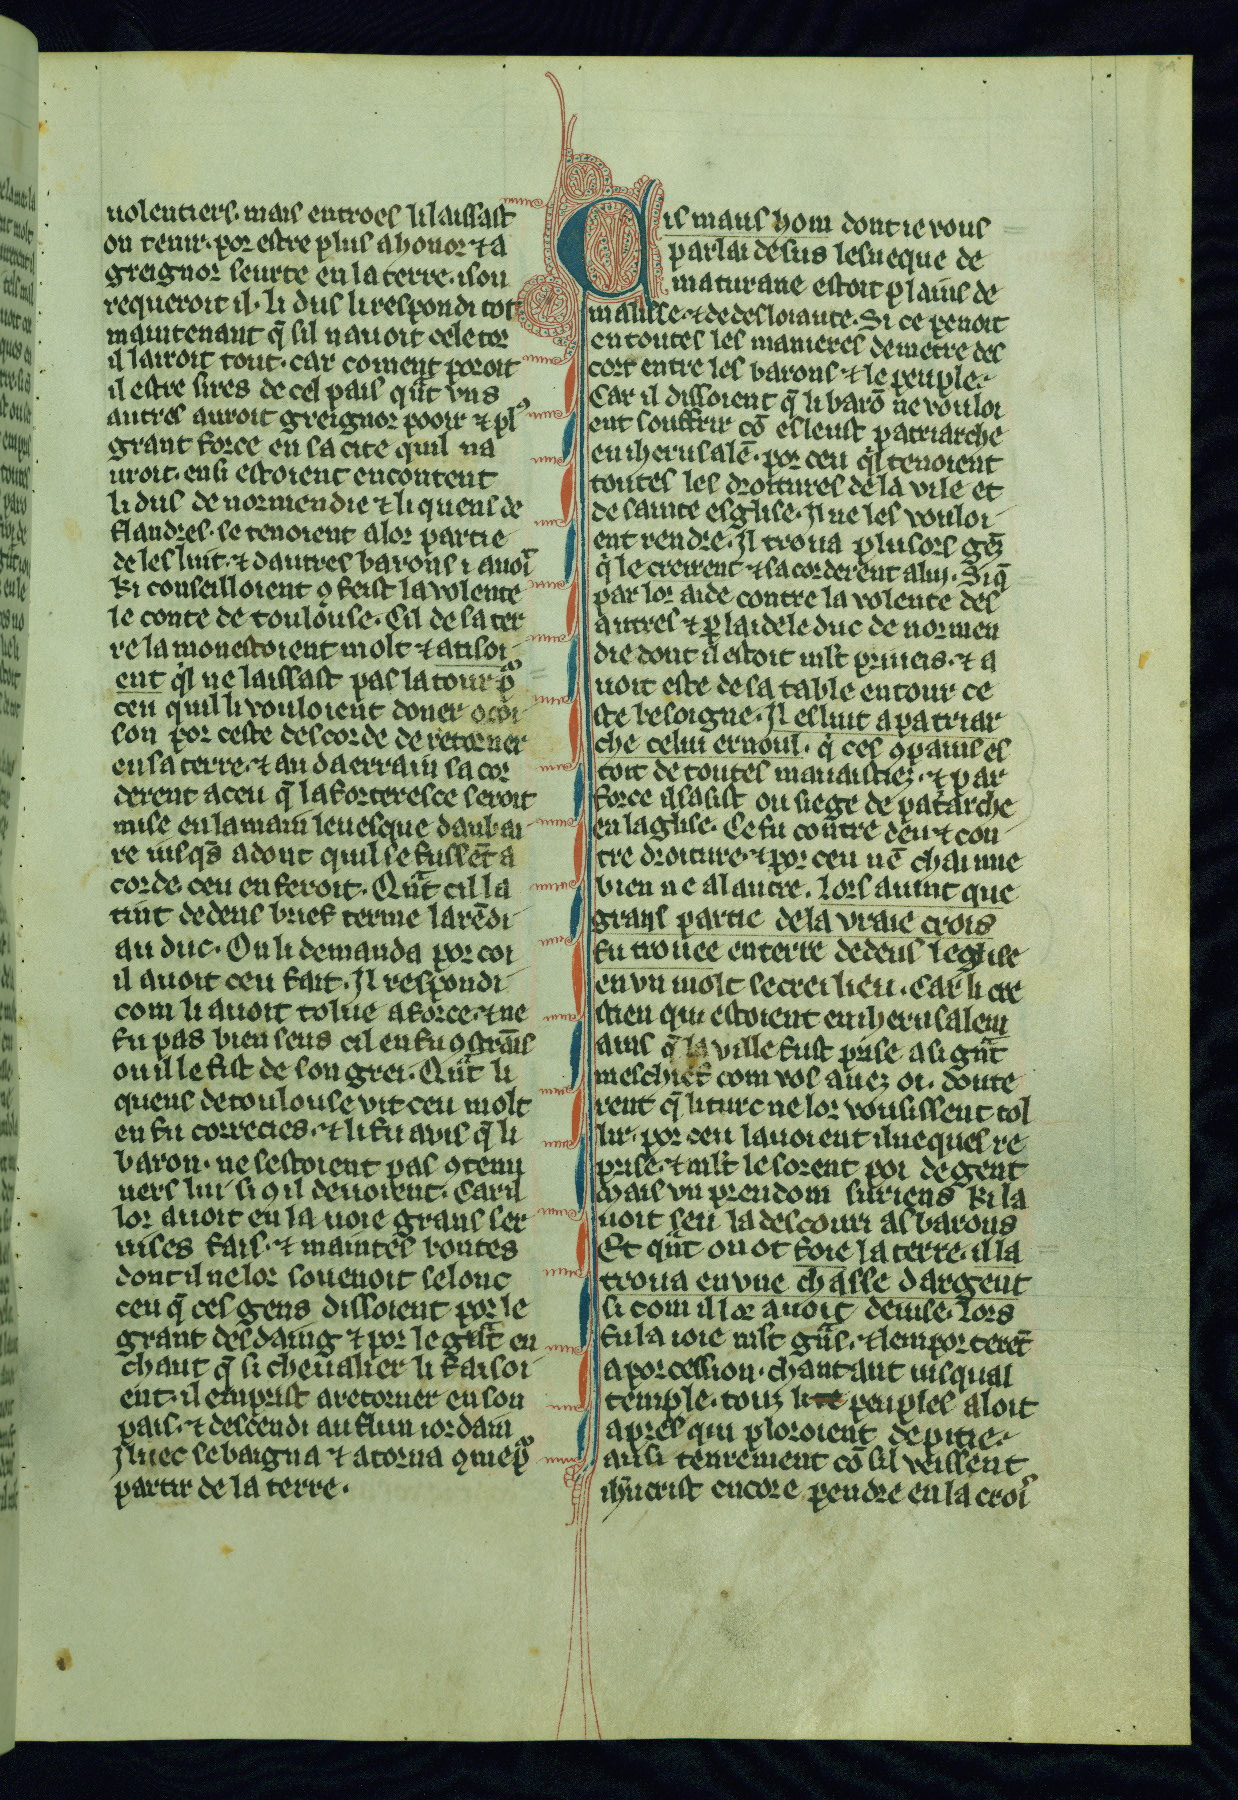 uolentiers. mais entroes li laissast
ou tenir. por estre plus a honor ⁊ a
greignor seurte en la terre. isou
requeroit il. li dus li respondi tot
maintenant q̄ sil nauoit cele tor
il lairoit tout. car coment poroit
il estre sires de cel pais qnt vns
autres auroit greignor pooir ⁊ plꝰ
grant force en sa cite quil na
uroit. ensi estoient en content
li dus de normendie ⁊ li quens de
flandres. se tenoient a lor partie
de les luit. ⁊ dautres barons i auoit
ki conseilloient ꝯ feist la volente
le conte de toulouse. Cil de sa ter
re la monestoient molt ⁊ atisoi
ent qͥl ne laissast pas la tour pͦ
ceu quil li vouloient doner ocoi
son por ceste descorde de retorner
en sa terre. ⁊ au daerrain sa cor
derent a ceu q̄ la forteresce seroit
mise en la main leuesque daubai
re iusqs adont quil se fussent a
corde. ceu en feroit. Qnt cil la
tint dedens brief terme la rēdi
au duc. On li demanda por coi
il auoit ceu fait. Il respondi
com li auoit tolue a force. ⁊ ne
fu pas bien seus cil en fu ꝯstrains
ou il le fist de son grei. Qnt li
quens de toulouse vit ceu molt
en fu correcies. ⁊ li fu avis q̄ li
baron. ne sestoient pas ꝯtenu
uers lui si ꝯ il deuoient. Car il
lor auoit en la uoie grans ser
uises fais. ⁊ maintes bontes
dont il ne lor souenoit selonc
ceu q̄ ces gens dissoient por le
grant desdaing ⁊ por le gnt en
chaut q̄ si cheualier li faisoi
ent. il emprist a retorner en son
pais. ⁊ descendi au flun iordain
Iluec se baigna ⁊ atorna ꝯme pͦ
partir de la terre.
Cis maus hom dont ie vous
parlai desus lesueque de
maturane estoit plains de
malisse. ⁊ de desloiaute. Si ce penoit
en toutes les manieres de metre des
cort entre les barons ⁊ le peuple.
Car il dissoient q̄ li barō ne vouloi
ent souffrir cō esleust patriarche
en iherusalē. por ceu qͥl tenoient
toutes les droitures de la vile et
de sainte esglise. Il ne les vouloi
ent rendre. Il troua plusors gēz
qͥ le creirent ⁊ sacorderent a lui. Si q̄
par lor aide contre la volente des
autres ⁊ p laide le duc de normen
die dont il estoit mlt priueis. ⁊ a
uoit este de sa table entour ce
ste besoigne. Il esluit a patriar
che celui ernoul. qͥ ces ꝯpains es
toit de toutes mauaistiez. ⁊ par
force il sasist ou siege de patarche
en laglise. Ce fu contre deu ⁊ con
tre droiture. ⁊ por ceu nē chai une
bien ne alautre. Lors auint que
grans partie de la vraie crois
fu trouee en terre dedens leglise
en vn molt secrei lieu. Car li cre
stien qui estoient en iherusalem
ains q̄ la ville fust prise a si gnt
meschief com vos auez oi. doute
rent q̄ li turc ne lor vousissent tol
lir. por ceu lauoient ilueques re
prise. ⁊ mlt le sorent poi de gent
Mais vn preudom suriens ki la
uoit seu la descouri as barons
Et qnt on ot foie la terre. il la
troua en vne chasse dargent
si com il lor auoit deuise. Lors
fu la ioie mlt gns. ⁊ lemporterēt
a porcession. chantant iusqual
temple. touz li peuples aloit
apres qui ploroient de pitie.
ausi tenrement cō sil veissent
ihucrist encore pendre en la crois